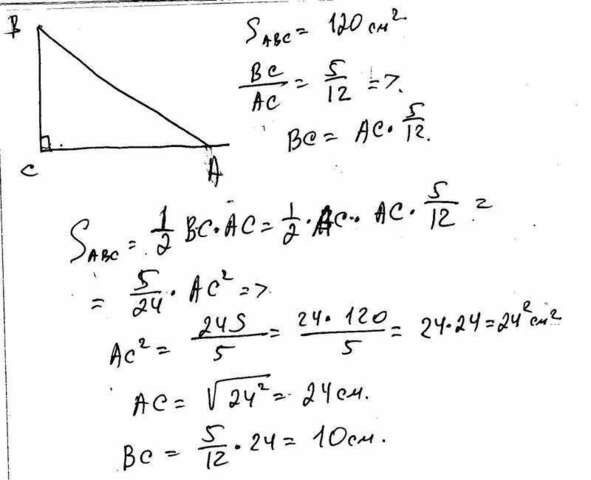 B
C
A
S_ABC = 120 см²
BC/AC = 5/12 =>.
BC = AC · 5/12.
S_ABC = 1/2 BC · AC = 1/2 · AC · AC · 5/12 =
= 5/24 · AC² =>
AC² = 24S/5 = 24 · 120/5 = 24 · 24 = 24² см²
AC = √24² = 24 см.
BC = 5/12 · 24 = 10 см.